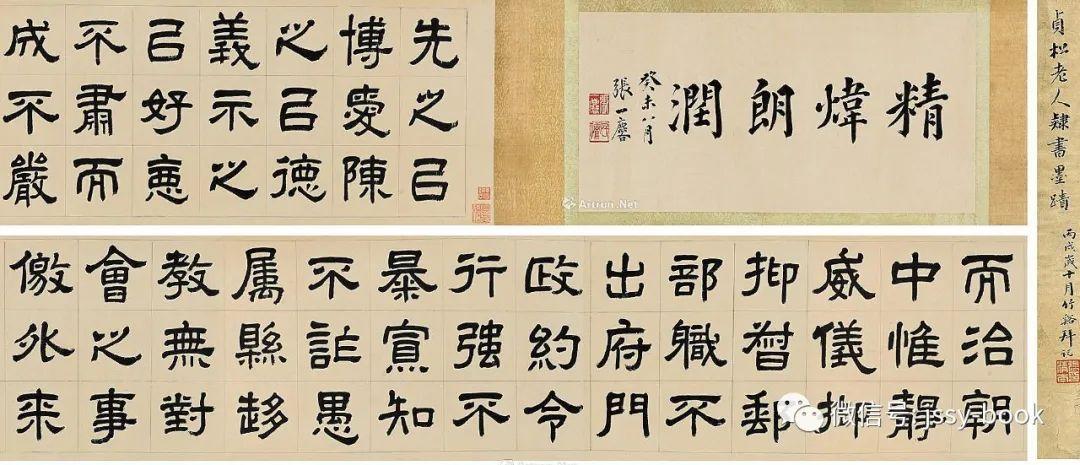 貞松老人隸書墨蹟
丙戌歲十月竹谿拜記
精煒朗潤
癸未八月
張一麐
先之㠯
博愛陳
之㠯德
義示之
㠯好惡
不肅而
成不嚴
而治朝
中惟靜
威儀抑
抑督郵
部職不
出府門
政約令
行強不
暴寡知
不詐愚
属縣趍
教無對
會之事
儌外來
Artron.Net
微信号: jssy-book